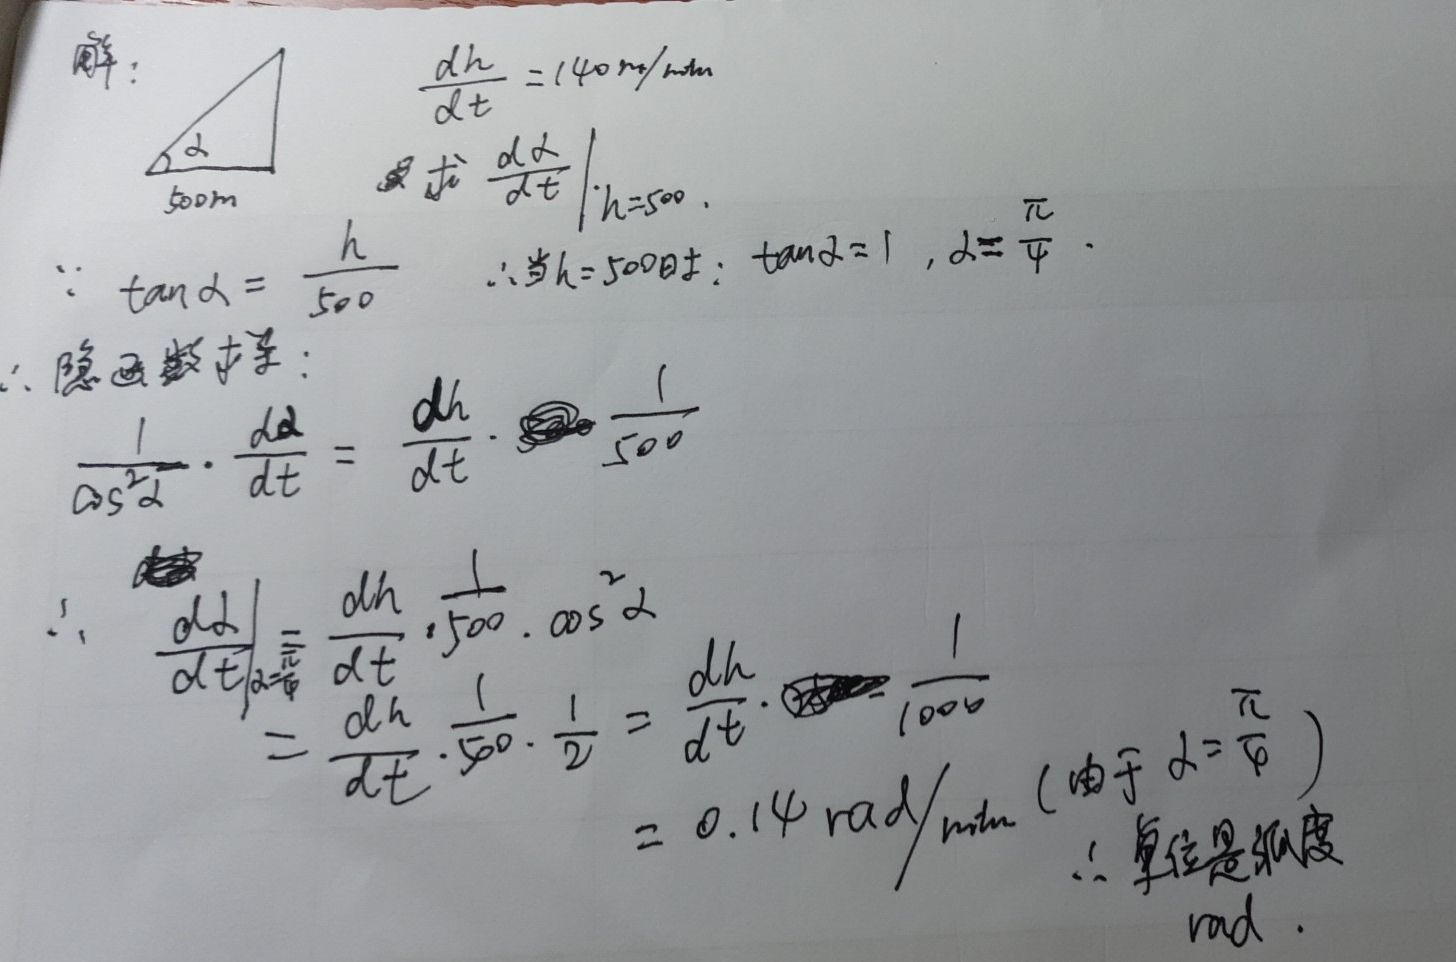 解:
dh/dt = 140 m/min
α
500m
求 dα/dt |h=500.
∵ tanα = h/500 ∴当h=500时: tanα=1, α=π/4.
∴ 隐函数求导:
1/cos²α · dα/dt = dh/dt · 1/500
∴ dα/dt |α=π/4 = dh/dt · 1/500 · cos²α
= dh/dt · 1/500 · 1/2 = dh/dt · 1/1000
= 0.14 rad/min (由于 α=π/4)
∴ 单位是弧度
rad.